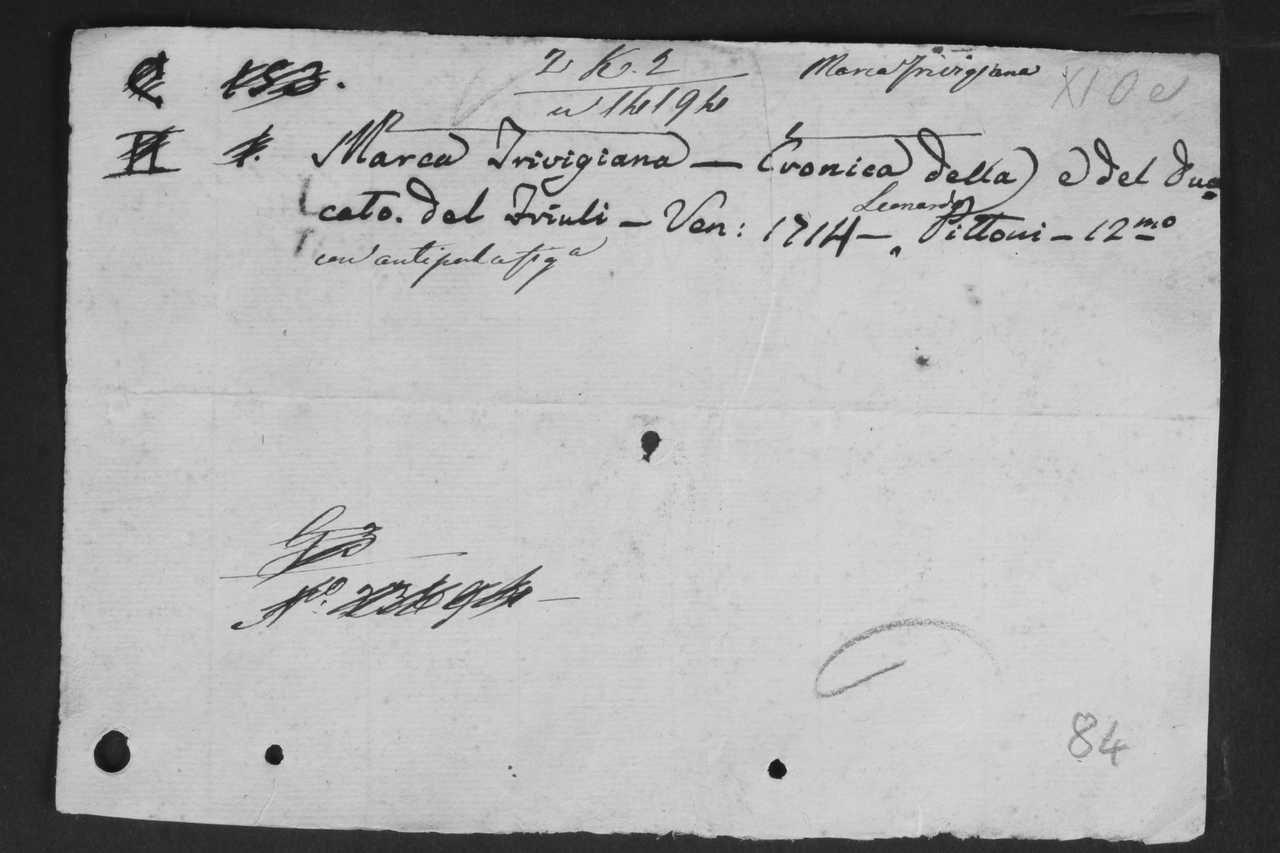 C 153.
Z K. 2
Marca Trivigiana
XI O e
n 14194
VI 1. Marca Trivigiana — Cronica della e del Du=
cato. del Friuli — Ven: 1714 — Leonardo Pittoni — 12mo
con antiporta figa
G 3
No. 23494 —
84